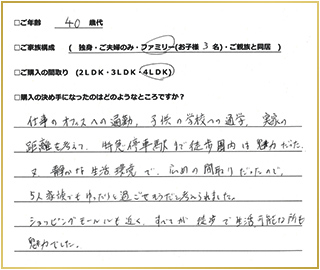 □ご年齢 40 歳代
□ご家族構成 ( 独身・ご夫婦のみ・ファミリー(お子様 3 名)・ご親族と同居 )
□ご購入の間取り (2LDK・3LDK・4LDK)
□購入の決め手になったのはどのようなところですか?
仕事のオフィスへの通勤、子供の学校への通学、実家の
距離を考えて、特急停車駅まで徒歩圏内は魅力だった。
又、静かな生活環境で、広めの間取りだったので、
5人家族でもゆったりと過ごせそうだと考えられました。
ショッピングモールにも近く、すべてが徒歩で生活可能な所も
魅力でした。